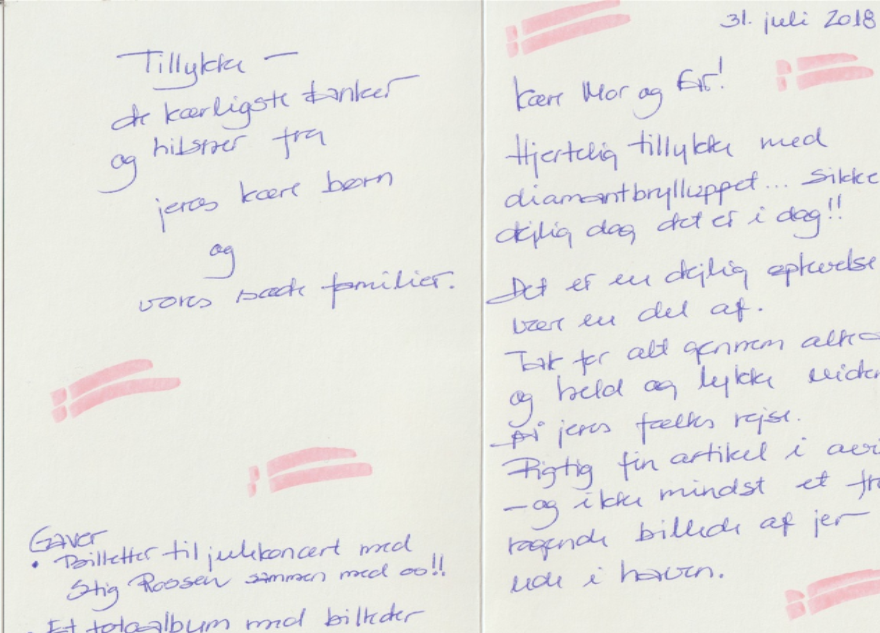 Tillykke –
de kærligste tanker
og hilsner fra
jeres kære børn
og
vores søde familier.
Gaver
• Billetter til julekoncert med
Stig Rossen sammen med os!!
• Et fotoalbum med billeder
31. juli 2018
Kære Mor og Far!
Hjertelig tillykke med
diamantbrylluppet... Sikke
dejlig dag det er i dag!!
Det er en dejlig oplevelse
være en del af.
Tak for alt gennem
og held og lykke
på jeres fælles rejse.
Rigtig fin artikel i
– og ikke mindst et
ragende billede af jer –
ude i haven.